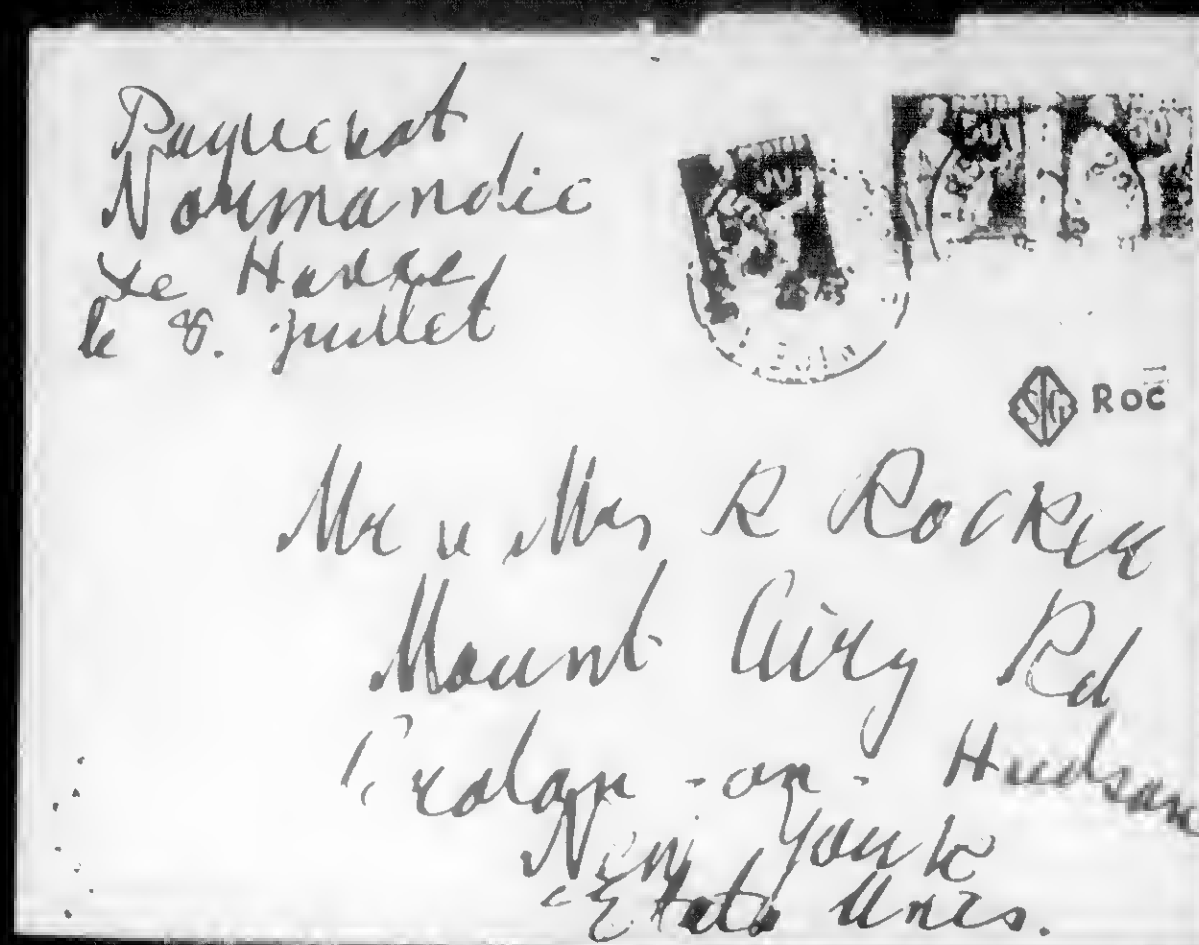 Paquebot
Normandie
Le Havre
le 8. juillet
50
50
SG Roc
Mr u Mrs R
Mount Airy Rd
Croton-on-Hudson
New York
Etats Unis.